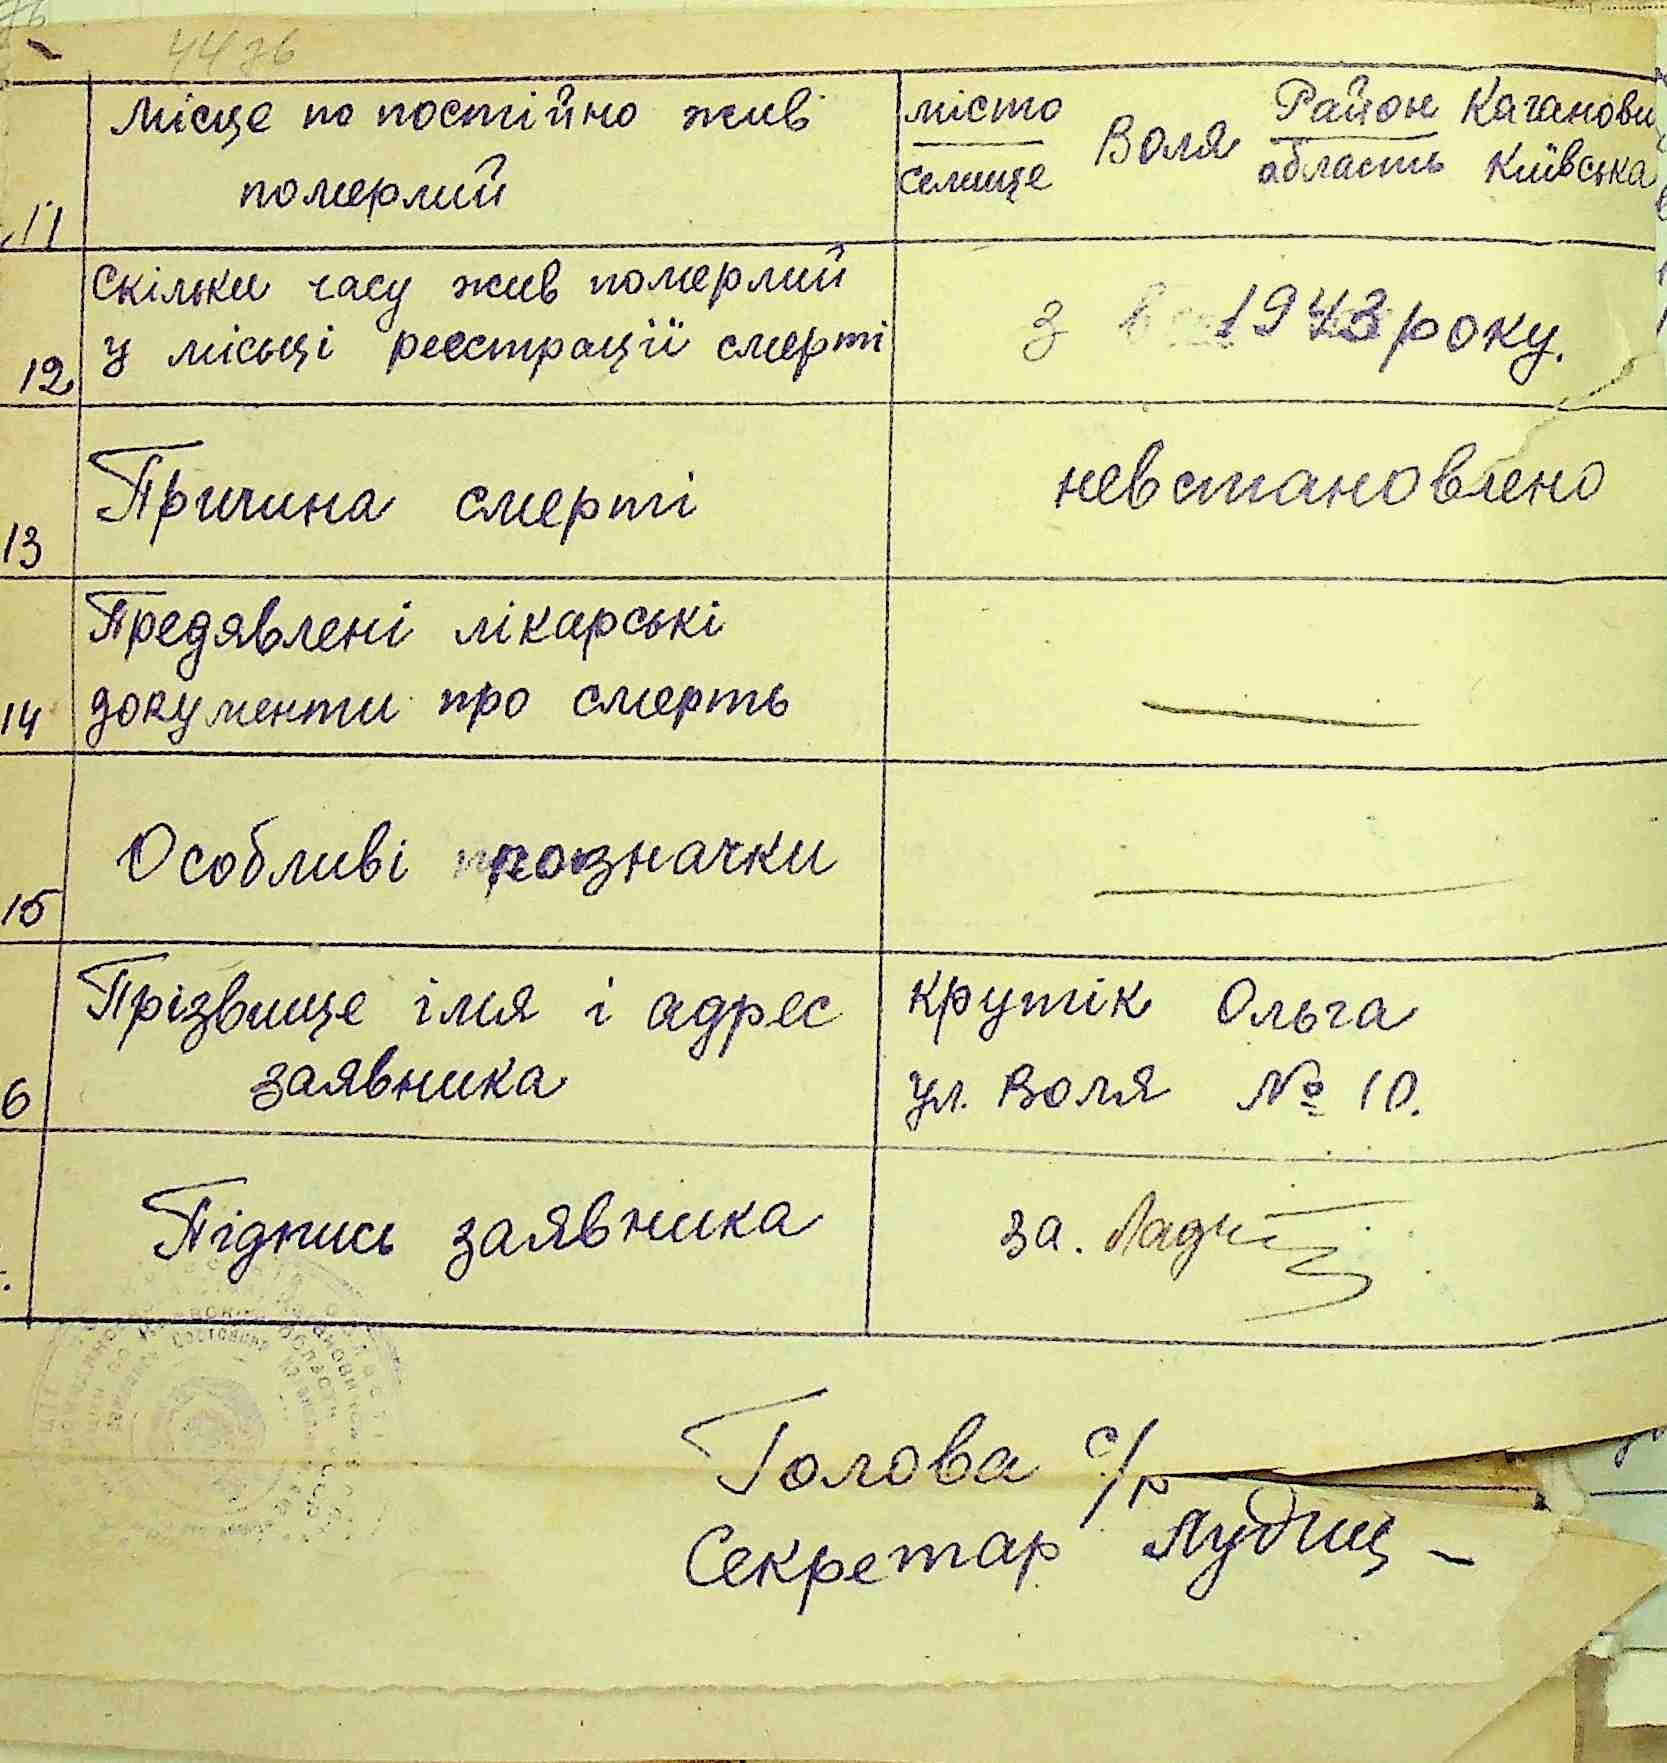 44 зв
11
Місце по постійно жив
померлий
місто
селище
Воля
Район Каганови
область Київська
12
Скільки часу жив померлий
у місьці реєстрації смерті
з 1943 року.
13
Причина смерті
невстановлено
14
Предявлені лікарські
документи про смерть
15
Особливі позначки
6
Прізвище імя і адрес
заявника
Крутік Ольга
ул. Воля № 10.
Підпись заявника
за.
Голова с/р
Секретар